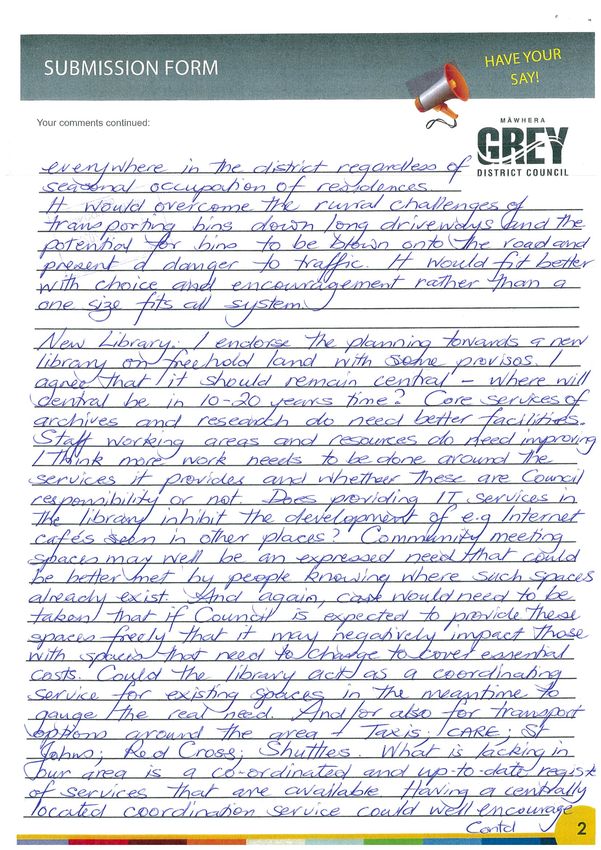 SUBMISSION FORM
HAVE YOUR
SAY!
Your comments continued:
MĀWHERA
GREY
DISTRICT COUNCIL
everywhere in the district regardless of
seasonal occupation of residences.
It would overcome the rural challenges of
transporting bins down long driveways and the
potential for bins to be blown onto the road and
present a danger to traffic. It would fit better
with choice and encouragement rather than a
one size fits all system.
New Library. I endorse the planning towards a new
library on freehold land with some provisos. I
agree that it should remain central - where will
central be in 10-20 years time? Core services of
archives and research do need better facilities.
Staff working areas and resources do need improving
I think more work needs to be done around the
services it provides and whether these are Council
responsibility or not. Does providing IT services in
the library inhibit the development of e.g Internet
cafés seen in other places? Community meeting
spaces may well be an expressed need that could
be better met by people knowing where such spaces
already exist. And again, care would need to be
taken that if Council is expected to provide these
spaces freely that it may negatively impact those
with spaces that need to charge to cover essential
costs. Could the library act as a coordinating
service for existing spaces in the meantime to
gauge the real need. And/or also for transport
options around the area - Taxis; CARE; St
Johns; Red Cross; Shuttles. What is lacking in
our area is a co-ordinated and up-to-date
of services that are available. Having a centrally
located coordination service could well encourage
Contd
2